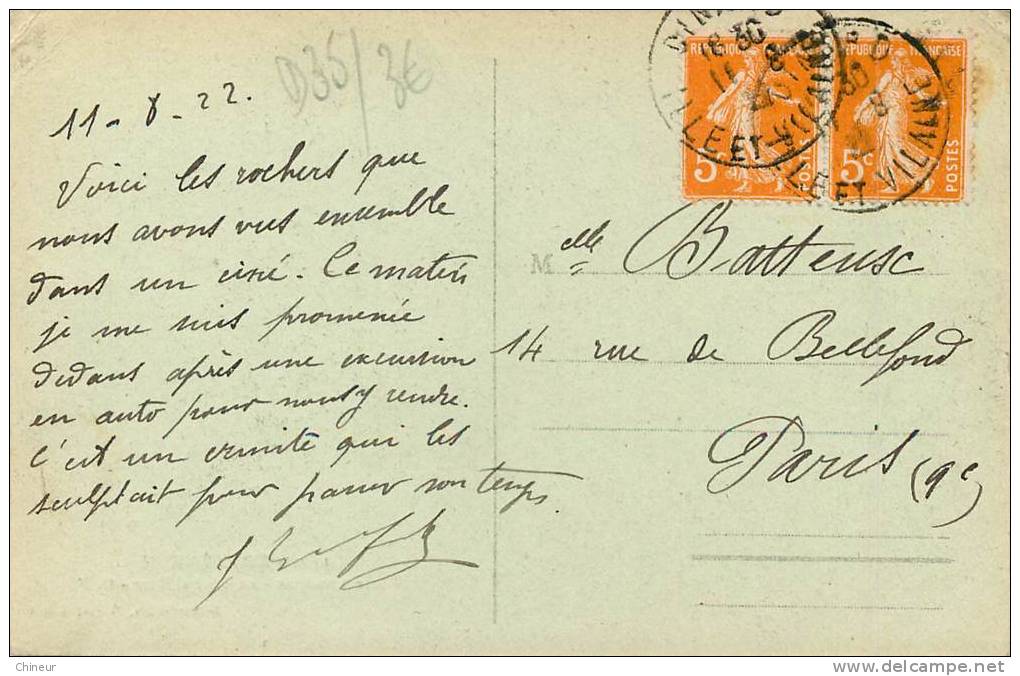 D35/3€
11-8-22.
Voici les rochers que
nous avons vus ensemble
dans un ciné. Ce matin
je me suis promenée
dedans après une excursion
en auto pour nous y rendre.
C'est un ermite qui les
sculptait pour passer son temps
REPUBLIQUE FRANÇAISE
5c
POSTES
REPUBLIQUE FRANÇAISE
5c
POSTES
ILLE ET VILAINE
ILLE ET VILAINE
Melle Batteux
14 rue de Bellefond
Paris (9e)
Chineur
www.delcampe.net